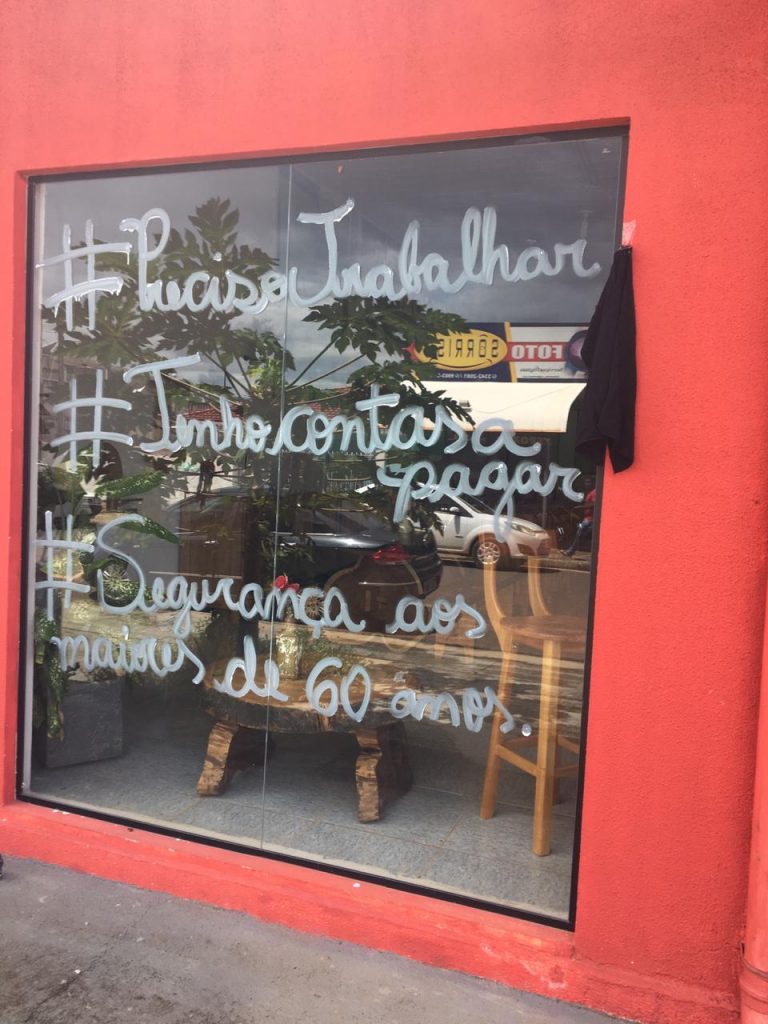 #Preciso Trabalhar
#Tenho contas a
pagar
#Segurança aos
maiores de 60 anos.
SORRIS
FOTO